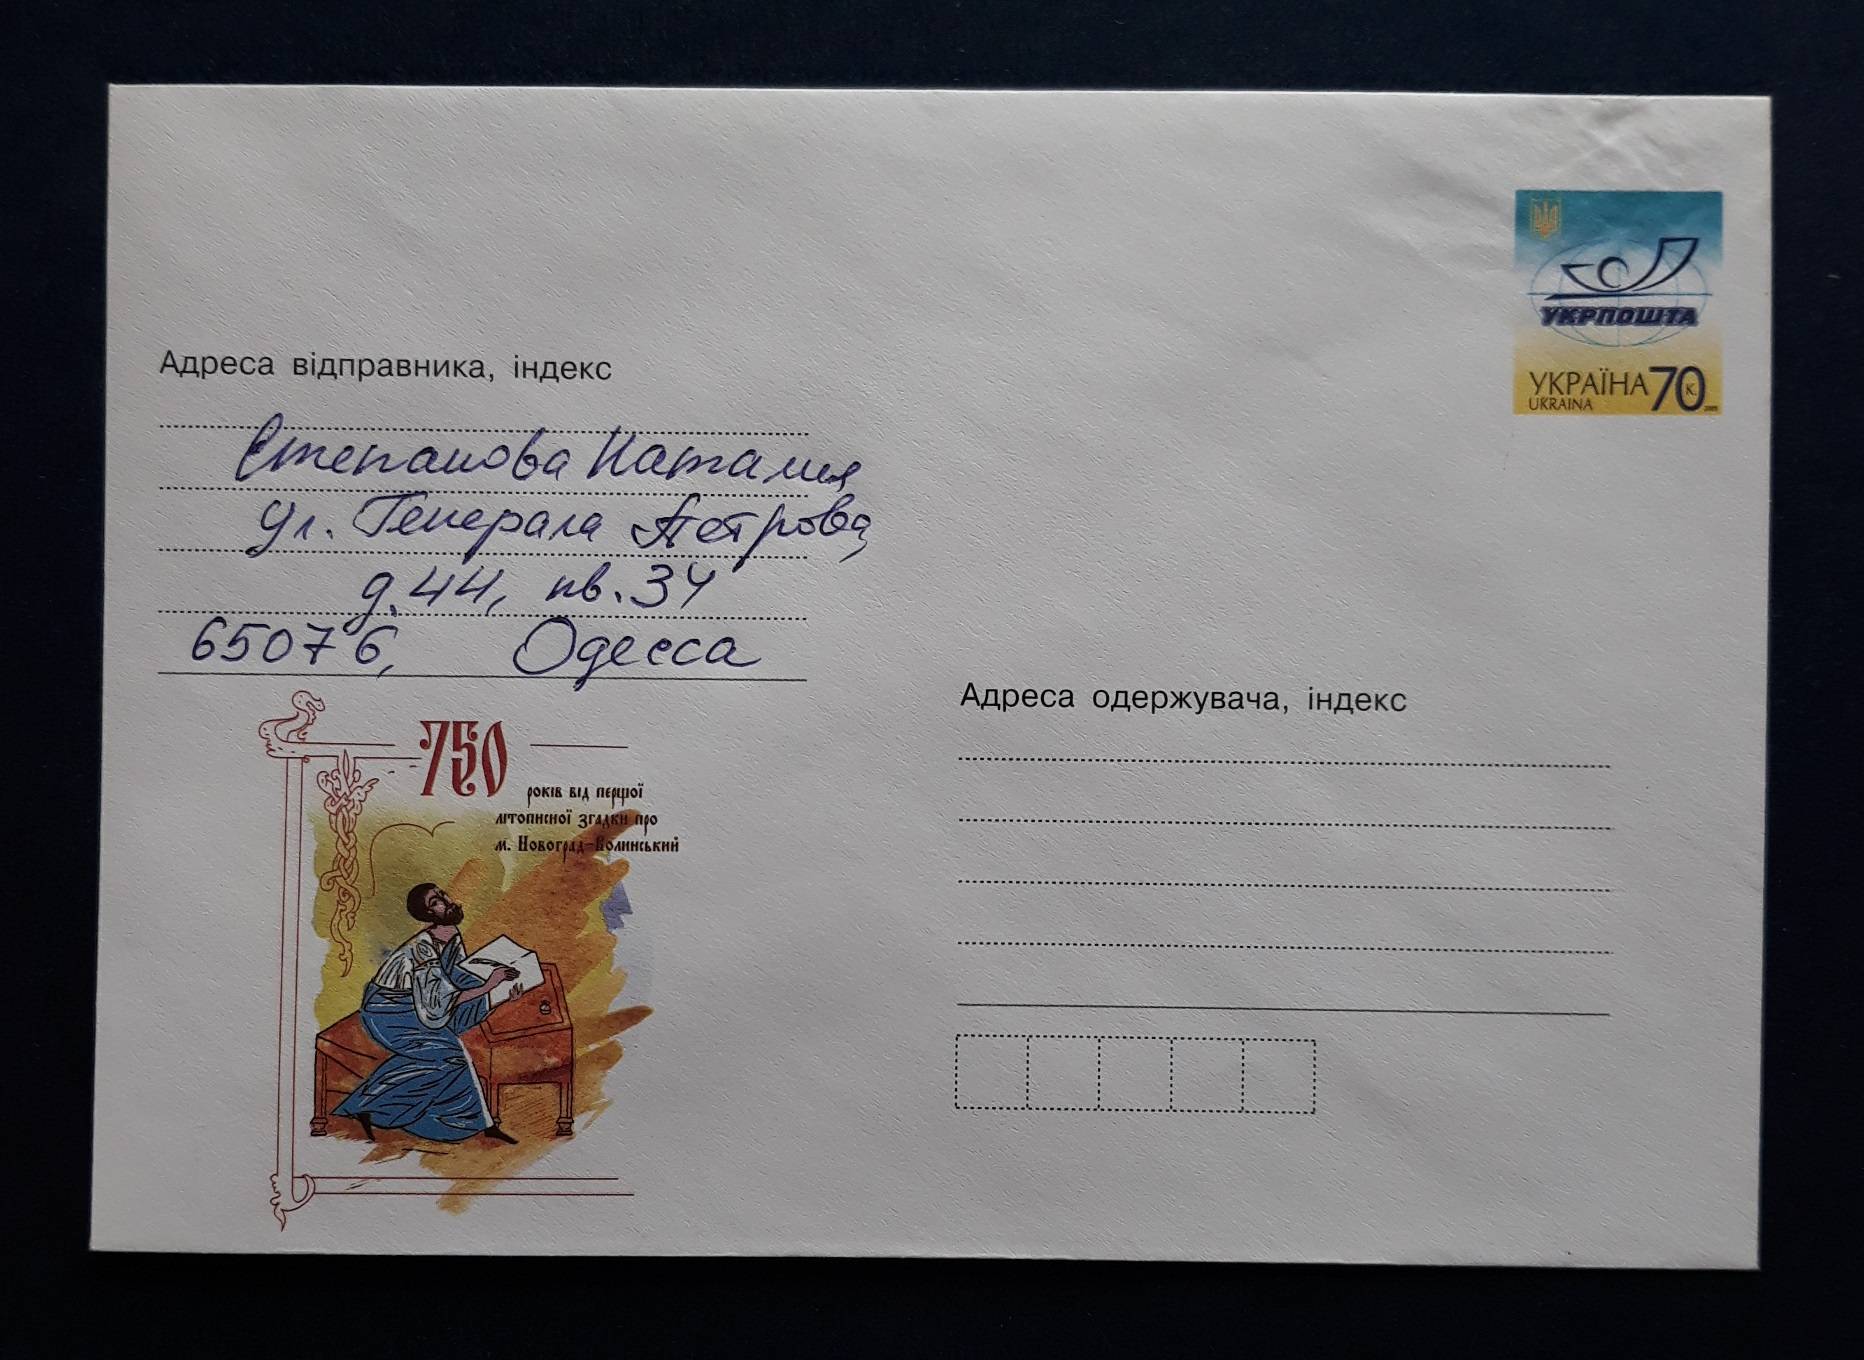 УКРПОШТА
УКРАЇНА 70 к.
UKRAINA
Адреса відправника, індекс
Степанова Наталия
ул. Генерала Петрова,
д. 44, кв. 34
65076, Одесса
750
років від першої
літописної згадки про
м. Новоград-Волинський
Адреса одержувача, індекс